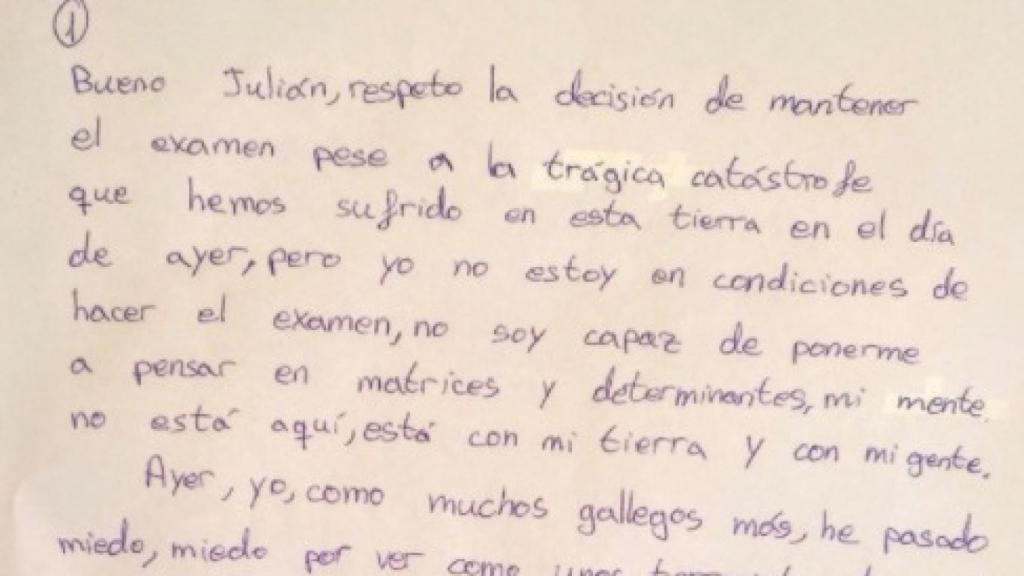 1
Bueno Julián, respeto la decisión de mantener
el examen pese a la trágica catástrofe
que hemos sufrido en esta tierra en el día
de ayer, pero yo no estoy en condiciones de
hacer el examen, no soy capaz de ponerme
a pensar en matrices y determinantes, mi mente
no está aquí, está con mi tierra y con mi gente.
Ayer, yo, como muchos gallegos más, he pasado
miedo, miedo por ver como unos